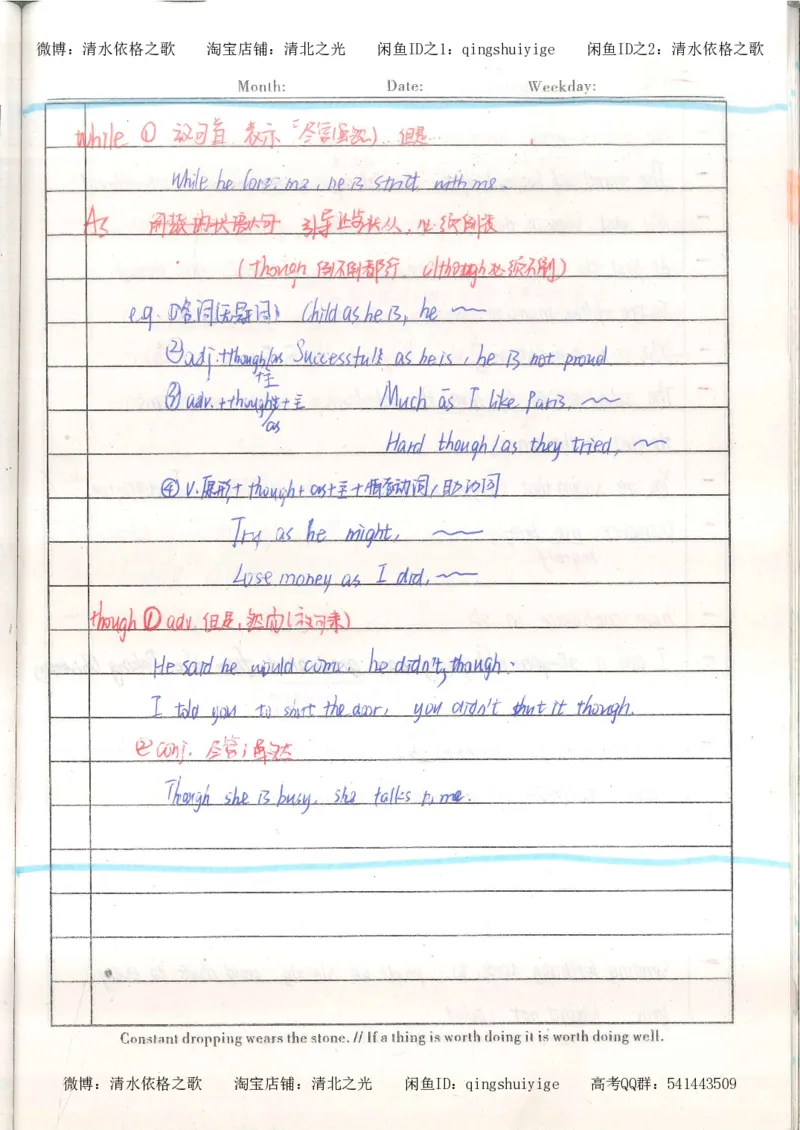 微博：清水依格之歌 淘宝店铺：清北之光 闲鱼ID之1：qingshuiyige 闲鱼ID之2：清水依格之歌
Month: Date: Weekday:
while ① 放句首，表示“尽管(虽说)…但是…
While he loves me, he is strict with me.
As 引导让步状从，必须倒装
(though 倒不倒都行 although必须不倒)
e.g. ① 名词(无冠词) Child as he is, he ～
② adj.+though/as Successful as he is, he is not proud.
+主
③ adv.+though+主 Much as I like Paris, ～
/as
Hard though/as they tried, ～
④ v.原形+though+as+主+情态动词/助动词
Try as he might, ～
Lose money as I did, ～
though ① adv. 但是，然而(放句末)
He said he would come. he didn't, though.
I told you to shut the door, you didn't shut it though.
② conj. 尽管；虽然
Though she is busy, she talks to me.
Constant dropping wears the stone. // If a thing is worth doing it is worth doing well.
微博：清水依格之歌 淘宝店铺：清北之光 闲鱼ID：qingshuiyige 高考QQ群：541443509